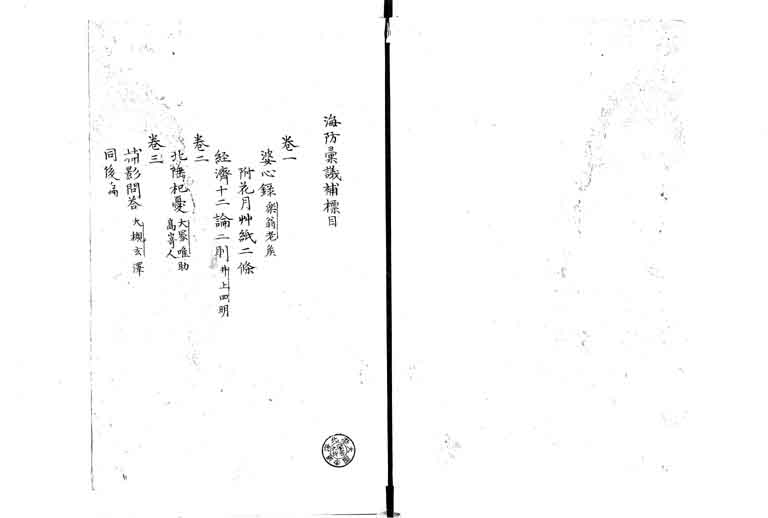 海防彙議補標目
巻一
婆心録 楽翁老矦
附花月艸紙二條
経濟十二論二則 井上四明
巻二
北陲杞憂 大冢唯助 高嵜人
巻三
捕影問答 大槻玄澤
同後篇